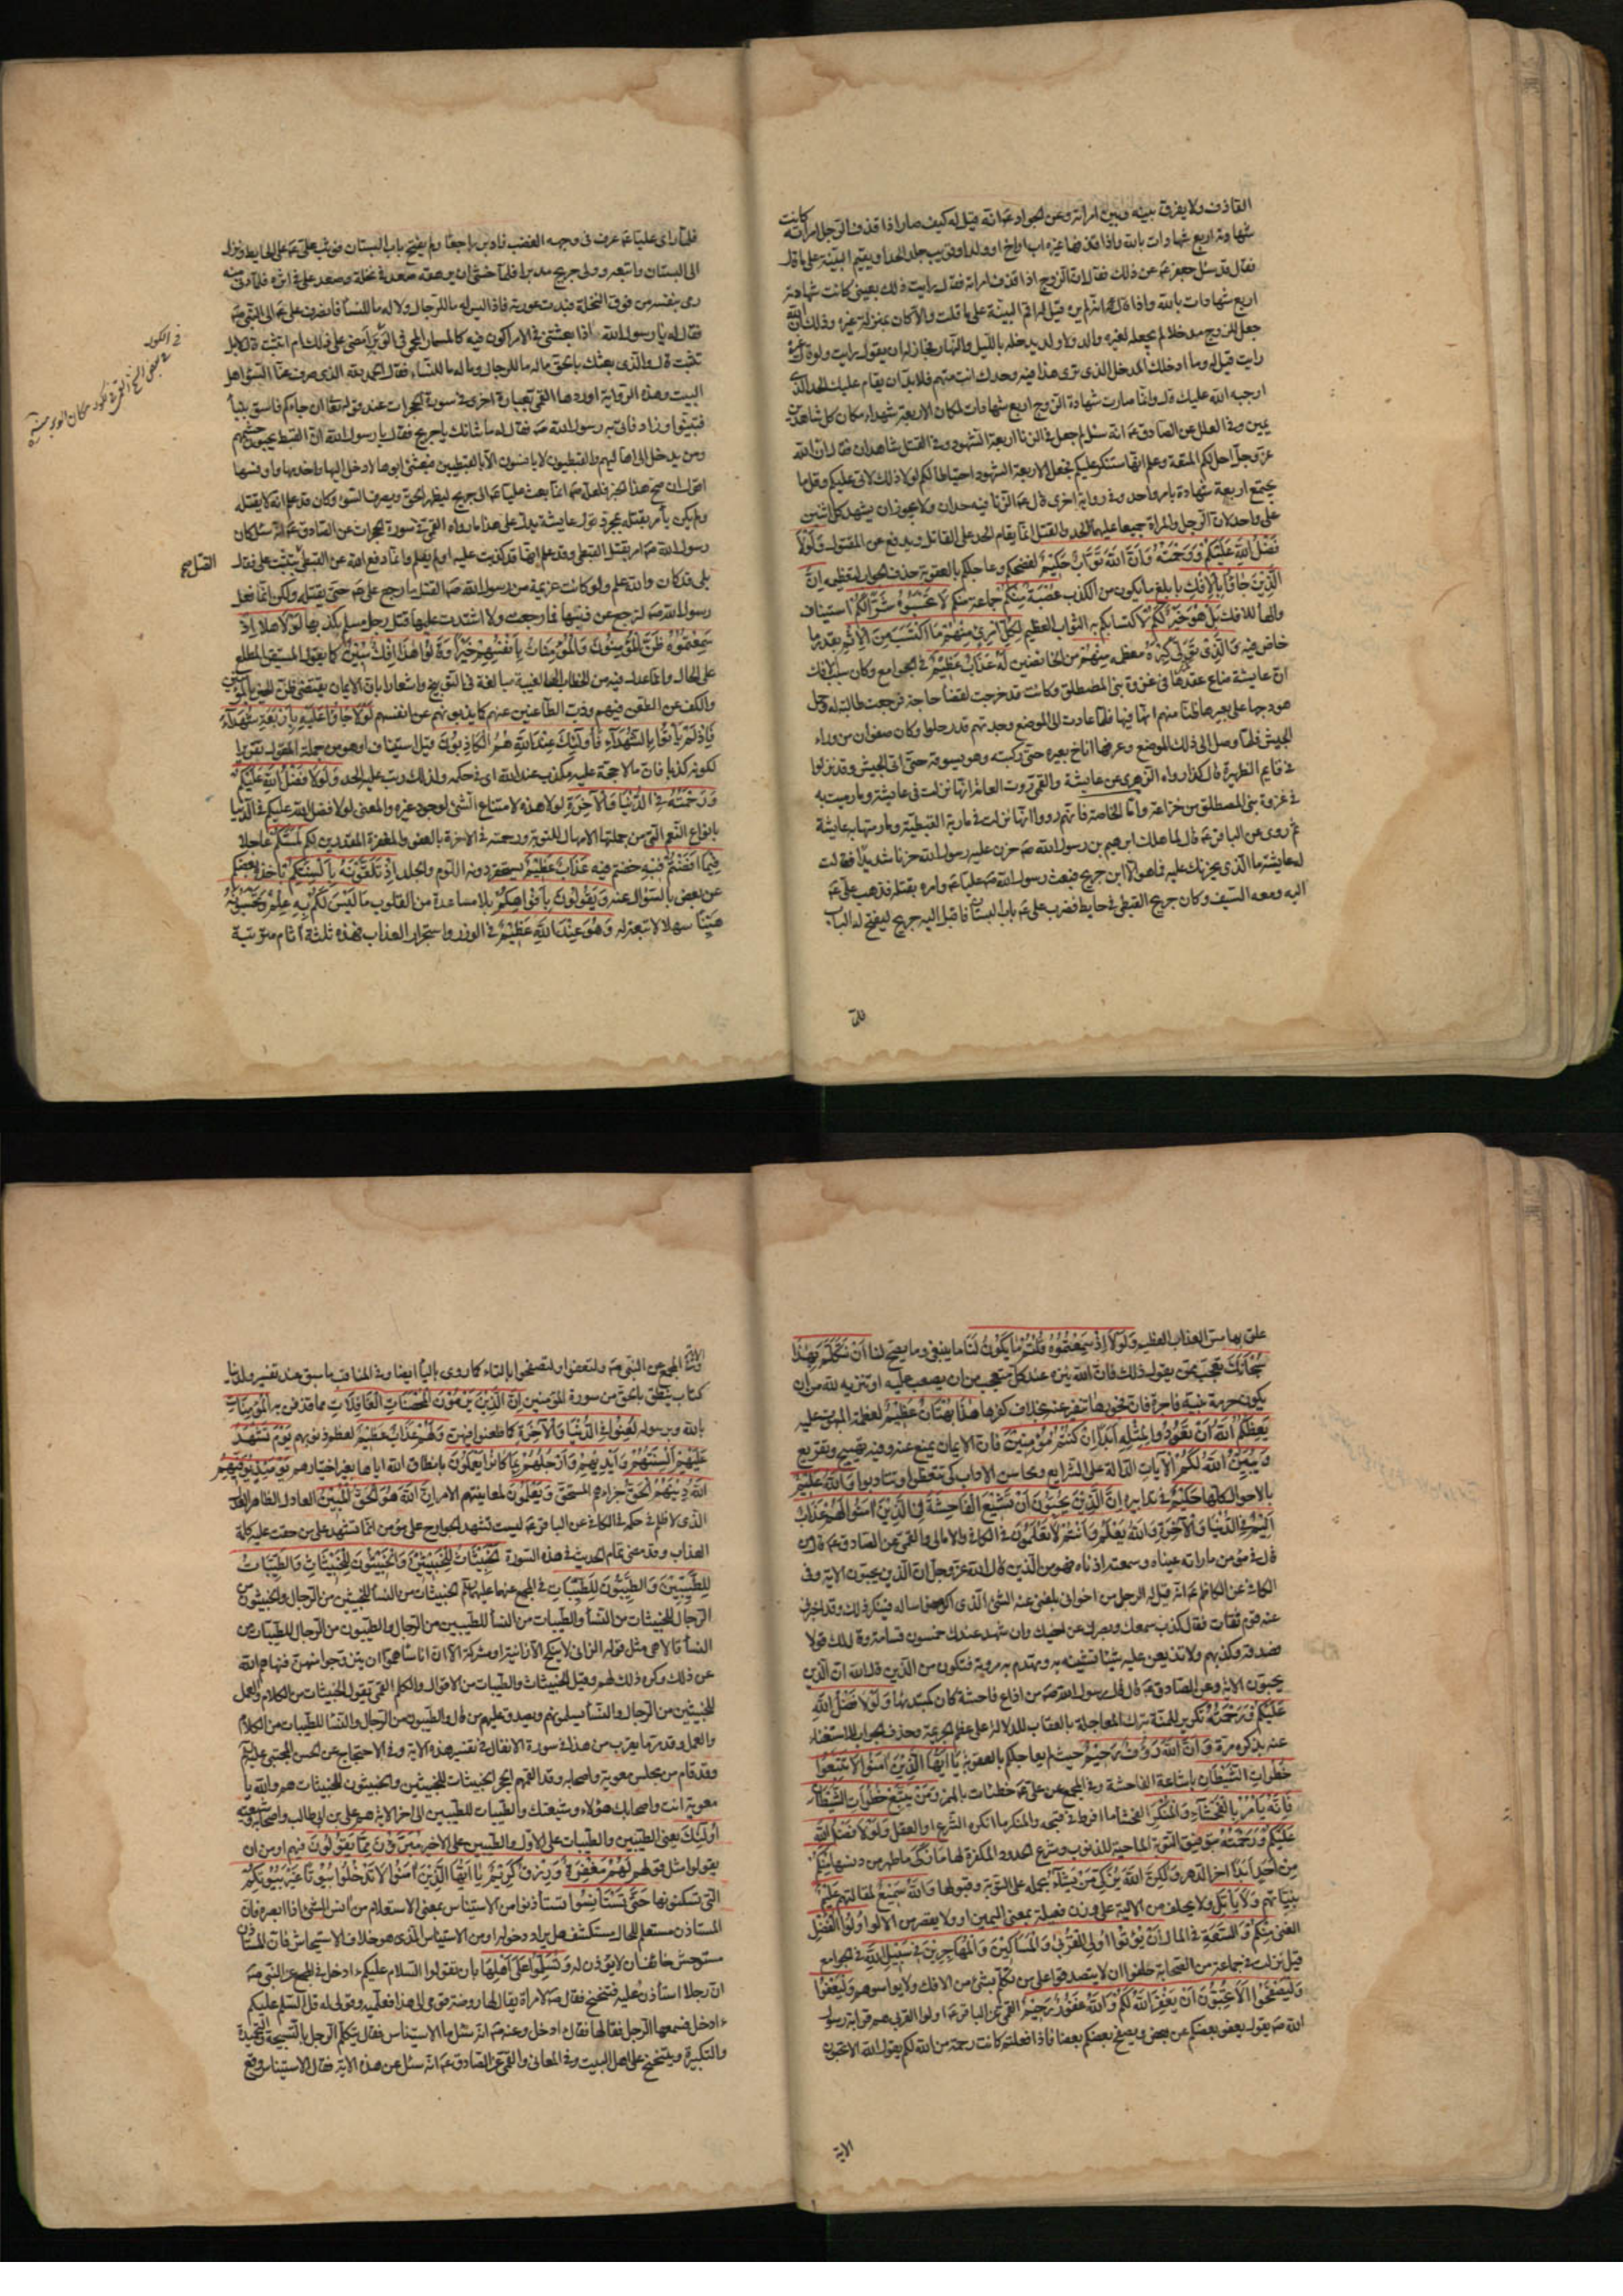 القاذف ولا يفرق بينه وبين امراته وعن الجواد عه انه قيل له كيف صار اذا قذف الرجل امراته كانت
شهادته اربع شهادات بالله واذا قذفها غيره اب او اخ او ولد او قريب جلد الحد او يقيم البينة على ما قال
فقال قد سئل جعفر عه عن ذلك فقال ان الزوج اذا قذف امراته فقال رايت ذلك بعيني كانت شهادته
اربع شهادات بالله واذا قال انه لم يره قيل له اقم البينة على ما قلت والا كان بمنزلة غيره وذلك ان الله
جعل للزوج مدخلا لم يجعله لغيره والد ولا ولد يدخله بالليل والنهار فجاز له ان يقول رايت ولو قال غيره
رايت قيل له وما ادخلك المدخل الذي ترى هذا فيه وحدك انت متهم فلا بد ان يقام عليك الحد الذي
اوجبه الله عليك قال وانما صارت شهادة الزوج اربع شهادات لمكان الاربعة شهداء مكان كل شاهد
يمين وفي العلل عن الصادق عه انه سئل لم جعل في الزنا اربعة الشهود وفي القتل شاهدان فقال ان الله
عز وجل احل لكم المتعة وعلم انها ستنكر عليكم فجعل الاربعة الشهود احتياطا لكم لولا ذلك لاتى عليكم وقل ما
يجتمع اربعة شهادة بامر واحد وفي رواية اخرى قال عه الزنا فيه حدان ولا يجوز ان يشهد كل اثنين
على واحد لان الرجل والمراة جميعا عليهما الحد والقتل انما يقام الحد على القاتل ويدفع عن المقتول ولولا
فضل الله عليكم ورحمته وان الله تواب حكيم لفضحكم وعاجلكم بالعقوبة حذف الجواب لتعظيمه ان
الذين جاؤا بالافك بابلغ ما يكون من الكذب عصبة منكم جماعة منكم لا تحسبوه شرا لكم استيناف
والهاء للافك بل هو خير لكم لاكتسابكم به الثواب العظيم لكل امرئ منهم ما اكتسب من الاثم بقدر ما
خاض فيه والذي تولى كبره معظمه منهم من الخائضين له عذاب عظيم في الجوامع وكان سبب الافك
ان عايشة ضاع عقدها في غزوة بني المصطلق وكانت قد خرجت لقضاء حاجة فرجعت طالبة له وحمل
هودجها على بعيرها ظنا منهم انها فيها فلما عادت الى الموضع وجدتهم قد رحلوا وكان صفوان من وراء
الجيش فلما وصل الى ذلك الموضع وعرفها اناخ بعيره حتى ركبته وهو يسوقه حتى اتى الجيش وقد نزلوا
في قايم الظهيرة قال كذا رواه الزهري عن عايشة والقمي روت العامة انها نزلت في عايشة وما رميت به
في غزوة بني المصطلق من خزاعة واما الخاصة فانهم رووا انها نزلت في مارية القبطية وما رمتها به عايشة
ثم روى عن الباقر عه قال لما هلك ابرهيم بن رسول الله صه حزن عليه رسول الله حزنا شديدا فقالت
له عايشة ما الذي يحزنك عليه فما هو الا ابن جريح فبعث رسول الله صه عليا عه وامره بقتله فذهب علي عه
اليه ومعه السيف وكان جريح القبطي في حايط فضرب علي عه باب البستان فاقبل اليه جريح ليفتح له الباب
فلما
فلما راى عليا عه عرف في وجهه الغضب فادبر راجعا ولم يفتح باب البستان فوثب علي عه على الحايط ونزل
الى البستان واتبعه وولى جريح مدبرا فلما خشي ان يرهقه صعد في نخلة وصعد علي في اثره فلما دنى منه
رمى بنفسه من فوق النخلة فبدت عورته فاذا ليس له ما للرجال ولا له ما للنساء فانصرف علي عه الى النبي صه
فقال له يا رسول الله اذا بعثتني في الامر اكون فيه كالمسمار المحمى في الوبر امضي على ذلك ام اتثبت قال لا بل
تثبت قال والذي بعثك بالحق ما له ما للرجال وما له ما للنساء فقال الحمد لله الذي صرف عنا السوء اهل
البيت وهذه الرواية اوردها القمي بعبارة اخرى في سورة الحجرات عند قوله تعالى ان جاءكم فاسق بنبأ
فتبينوا وزاد فاتى به رسول الله صه فقال له ما شانك يا جريح فقال يا رسول الله ان القبط يحبون حشمهم
ومن يدخل الى اهاليهم والقبطيون لا يانسون الا بالقبطيين فبعثني ابوها لادخل اليها واخدمها واونسها
اقول ان صح هذا الخبر فلعله صه انما بعث عليا عه الى جريح ليظهر الحق ويصرف السوء وكان قد علم انه لا يقتله
ولم يكن يامر بقتله بمجرد قول عايشة يدل على هذا ما رواه القمي في سورة الحجرات عن الصادق عه انه سئل كان
رسول الله صه امر بقتل القبطي وقد علم انها قد كذبت عليه او لم يعلم وانما دفع الله عن القبطي بتثبت علي فقال
بلى قد كان والله علم ولو كانت عزيمة من رسول الله صه القتل ما رجع علي عه حتى يقتله ولكن انما فعل
رسول الله صه لترجع عن ذنبها فما رجعت ولا اشتدت عليها قتل رجل مسلم بكذبها لولا هلا اذ
سمعتموه ظن المؤمنون والمؤمنات بانفسهم خيرا وقالوا هذا افك مبين كما يقول المستيقن المطلع
على الحال وانما عدل فيه من الخطاب الى الغيبة مبالغة في التوبيخ واشعارا بان الايمان يقتضي ظن الخير بالمؤمنين
والكف عن الطعن فيهم وذب الطاعنين عنهم كما يذبونهم عن انفسهم لولا جاؤا عليه باربعة شهداء
فاذ لم ياتوا بالشهداء فاولئك عند الله هم الكاذبون قيل استيناف او هو من جملة المقول تقريرا
لكونه كذبا فان ما لا حجة عليه مكذب عند الله اي في حكمه ولذلك رتب عليه الحد ولولا فضل الله عليكم
ورحمته في الدنيا والاخرة لولا هذه لامتناع الشئ لوجود غيره والمعنى لولا فضل الله عليكم في الدنيا
بانواع النعم التي من جملتها الامهال للتوبة ورحمته في الاخرة بالعفو والمغفرة المقدرين لكم لمسكم عاجلا
فيما افضتم فيه خضتم فيه عذاب عظيم يستحقر دونه اللوم والجلد اذ تلقونه بالسنتكم ياخذه بعضكم
عن بعض بالسؤال عنه وتقولون بافواهكم بلا مساعدة من القلوب ما ليس لكم به علم وتحسبونه
هينا سهلا لا تبعة له وهو عند الله عظيم في الوزر واستجرار العذاب فهذه ثلثة آثام مترتبة
القتل صح
علق بها مس العذاب العظيم ولولا اذ سمعتموه قلتم ما يكون لنا ما ينبغي وما يصح لنا ان نتكلم بهذا
سبحانك تعجب ممن يقول ذلك فان الله ينزه عند كل متعجب من ان يصعب عليه او تنزيه لله من ان
يكون حرمة نبيه فاجرة فان فجورها تنفر عنه بخلاف كفرها هذا بهتان عظيم لعظمة المبهوت عليه
يعظكم الله ان تعودوا لمثله ابدا ان كنتم مؤمنين فان الايمان يمنع عنه وفيه تهييج وتقريع
ويبين الله لكم الآيات الدالة على الشرايع ومحاسن الاداب كي تتعظوا وتتادبوا والله عليم
بالاحوال كلها حكيم في تدابيره ان الذين يحبون ان تشيع الفاحشة في الذين امنوا لهم عذاب
اليم في الدنيا والاخرة والله يعلم وانتم لا تعلمون في الكافي والامالي والقمي عن الصادق عه قال من
قال في مؤمن ما راته عيناه وسمعته اذناه فهو من الذين قال الله عز وجل ان الذين يحبون الاية وفي
الكافي عن الكاظم عه انه قيل له الرجل من اخواني يبلغني عنه الشئ الذي اكرهه فاساله فينكر ذلك وقد اخبرني
عنه قوم ثقات فقال كذب سمعك وبصرك عن اخيك وان شهد عندك خمسون قسامة وقال لك قولا
فصدقه وكذبهم ولا تذيعن عليه شيئا تشينه به وتهدم به مروته فتكون من الذين قال الله ان الذين
يحبون الاية وعن الصادق عه قال قال رسول الله صه من اذاع فاحشة كان كمبتديها ولولا فضل الله
عليكم ورحمته تكرير للمنة بترك المعاجلة بالعقاب للدلالة على عظم الجريمة وحذف الجواب للاستغناء
عنه بذكره مرة وان الله رؤف رحيم حيث لم يعاجلكم بالعقوبة يا ايها الذين امنوا لا تتبعوا
خطوات الشيطان باشاعة الفاحشة وفي المجمع عن علي عه خطئات بالهمز ومن يتبع خطوات الشيطان
فانه يامر بالفحشاء والمنكر الفحشاء ما افرط في قبحه والمنكر ما انكره الشرع او العقل ولولا فضل الله
عليكم ورحمته بتوفيق التوبة الماحية للذنوب وشرع الحدود المكفرة لها ما زكى ما طهر من دنسها منكم
من احد ابدا اخر الدهر ولكن الله يزكي من يشاء بحمله على التوبة وقبولها والله سميع لمقالتهم عليم
بنياتهم ولا ياتل ولا يحلف من الالية على وزن فعيلة بمعنى اليمين او ولا يقصر من الالو اولوا الفضل
الغنى منكم والسعة في المال ان يؤتوا اولي القربى والمساكين والمهاجرين في سبيل الله في الجوامع
قيل نزلت في جماعة من الصحابة حلفوا ان لا يتصدقوا على من تكلم بشئ من الافك ولا يواسوهم وليعفوا
وليصفحوا الا تحبون ان يغفر الله لكم والله غفور رحيم القمي عن الباقر عه اولوا القربى هم قرابة رسول
الله صه يقول يعفو بعضكم عن بعض ويصفح بعضكم بعضا فاذا فعلتم كانت رحمة من الله لكم يقول الله الا تحبون
الاية
الاية وفي المجمع عن النبي صه ولتعفوا ولتصفحوا بالتاء كما روى بالياء ايضا وفي المناقب ما سبق عند تفسير ولدينا
كتاب ينطق بالحق من سورة المؤمنين ان الذين يرمون المحصنات الغافلات مما قذفن به المؤمنات
بالله وبرسوله لعنوا في الدنيا والاخرة كما طعنوا فيهن ولهم عذاب عظيم لعظم ذنوبهم يوم تشهد
عليهم السنتهم وايديهم وارجلهم بما كانوا يعملون بانطاق الله اياها بغير اختيارهم يومئذ يوفيهم
الله دينهم الحق جزاءهم المستحق ويعلمون لمعاينتهم الامر ان الله هو الحق المبين العادل الظاهر العدل
الذي لا ظلم في حكمه في الكافي عن الباقر عه ليست تشهد الجوارح على مؤمن انما تشهد على من حقت عليه كلمة
العذاب وقد مضى تمام الحديث في هذه السورة الخبيثات للخبيثين والخبيثون للخبيثات والطيبات
للطيبين والطيبون للطيبات في المجمع عنهما عليهما السلم الخبيثات من النساء للخبيثين من الرجال والخبيثون من
الرجال للخبيثات من النساء والطيبات من النساء للطيبين من الرجال والطيبون من الرجال للطيبات من
النساء قالا هي مثل قوله الزاني لا ينكح الا زانية او مشركة الا ان اناسا هموا ان يتزوجوا منهن فنهاهم الله
عن ذلك وكره ذلك لهم وقيل الخبيثات والطيبات من الاقوال والكلم القمي يقول الخبيثات من الكلام والعمل
للخبيثين من الرجال والنساء يسلمونهم ويصدق عليهم من قال والطيبون من الرجال والنساء للطيبات من الكلام
والعمل وقد مر ما يقرب من هذا في سورة الانفال في تفسير هذه الاية وفي الاحتجاج عن الحسن المجتبى عليه السلم
وقد قام من مجلس معوية واصحابه وقد القمهم الحجر الخبيثات للخبيثين والخبيثون للخبيثات هم والله يا
معوية انت واصحابك هؤلاء وشيعتك والطيبات للطيبين الى اخر الاية هم علي بن ابي طالب واصحابه وشيعته
اولئك يعني الطيبين والطيبات على الاول والطيبين على الاخير مبرؤن مما يقولون فيهم او من ان
يقولوا مثل قولهم لهم مغفرة ورزق كريم يا ايها الذين امنوا لا تدخلوا بيوتا غير بيوتكم
التي تسكنونها حتى تستانسوا تستأذنوا من الاستيناس بمعنى الاستعلام من آنس الشئ اذا ابصره فان
المستاذن مستعلم للحال مستكشف هل يراد دخوله او من الاستيناس الذي هو خلاف الاستيحاش فان المستاذن
مستوحش خائف ان لا يؤذن له وتسلموا على اهلها بأن تقولوا السلام عليكم ءادخل في المجمع عن النبي صه
ان رجلا استأذن عليه فتنحنح فقال صه لامراة يقال لها روضة قومي الى هذا فعلميه وقولي له قل السلم عليكم
ءادخل فسمعها الرجل فقالها فقال ادخل وعنه صه انه سئل ما الاستيناس فقال يتكلم الرجل بالتسبيحة والتحميدة
والتكبيرة ويتنحنح على اهل البيت وفي المعاني والقمي عن الصادق عه انه سئل عن هذه الاية فقال الاستيناس وقع